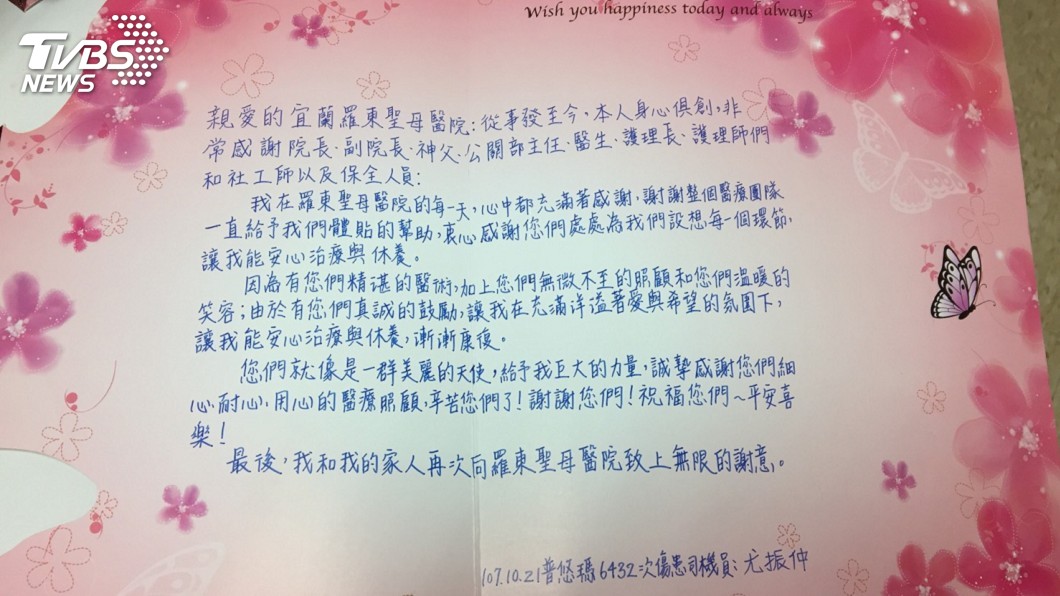 Wish you happiness today and always
TVBS
NEWS
親愛的宜蘭羅東聖母醫院:從事發至今,本人身心俱創,非
常感謝院長、副院長、神父、公關部主任、醫生、護理長、護理師們
和社工師以及保全人員:
我在羅東聖母醫院的每一天,心中都充滿著感謝,謝謝整個醫療團隊
一直給予我們體貼的幫助,衷心感謝您們處處為我們設想每一個環節,
讓我能安心治療與休養。
因為有您們精湛的醫術,加上您們無微不至的照顧和您們溫暖的
笑容;由於有您們真誠的鼓勵,讓我在充滿洋溢著愛與希望的氛圍下,
讓我能安心治療與休養,漸漸康復。
您們就像是一群美麗的天使,給予我巨大的力量,誠摯感謝您們細
心、耐心、用心的醫療照顧,辛苦您們了!謝謝您們!祝福您們~平安喜
樂!
最後,我和我的家人再次向羅東聖母醫院致上無限的謝意。
107.10.21普悠瑪6432次傷患司機員:尤振仲